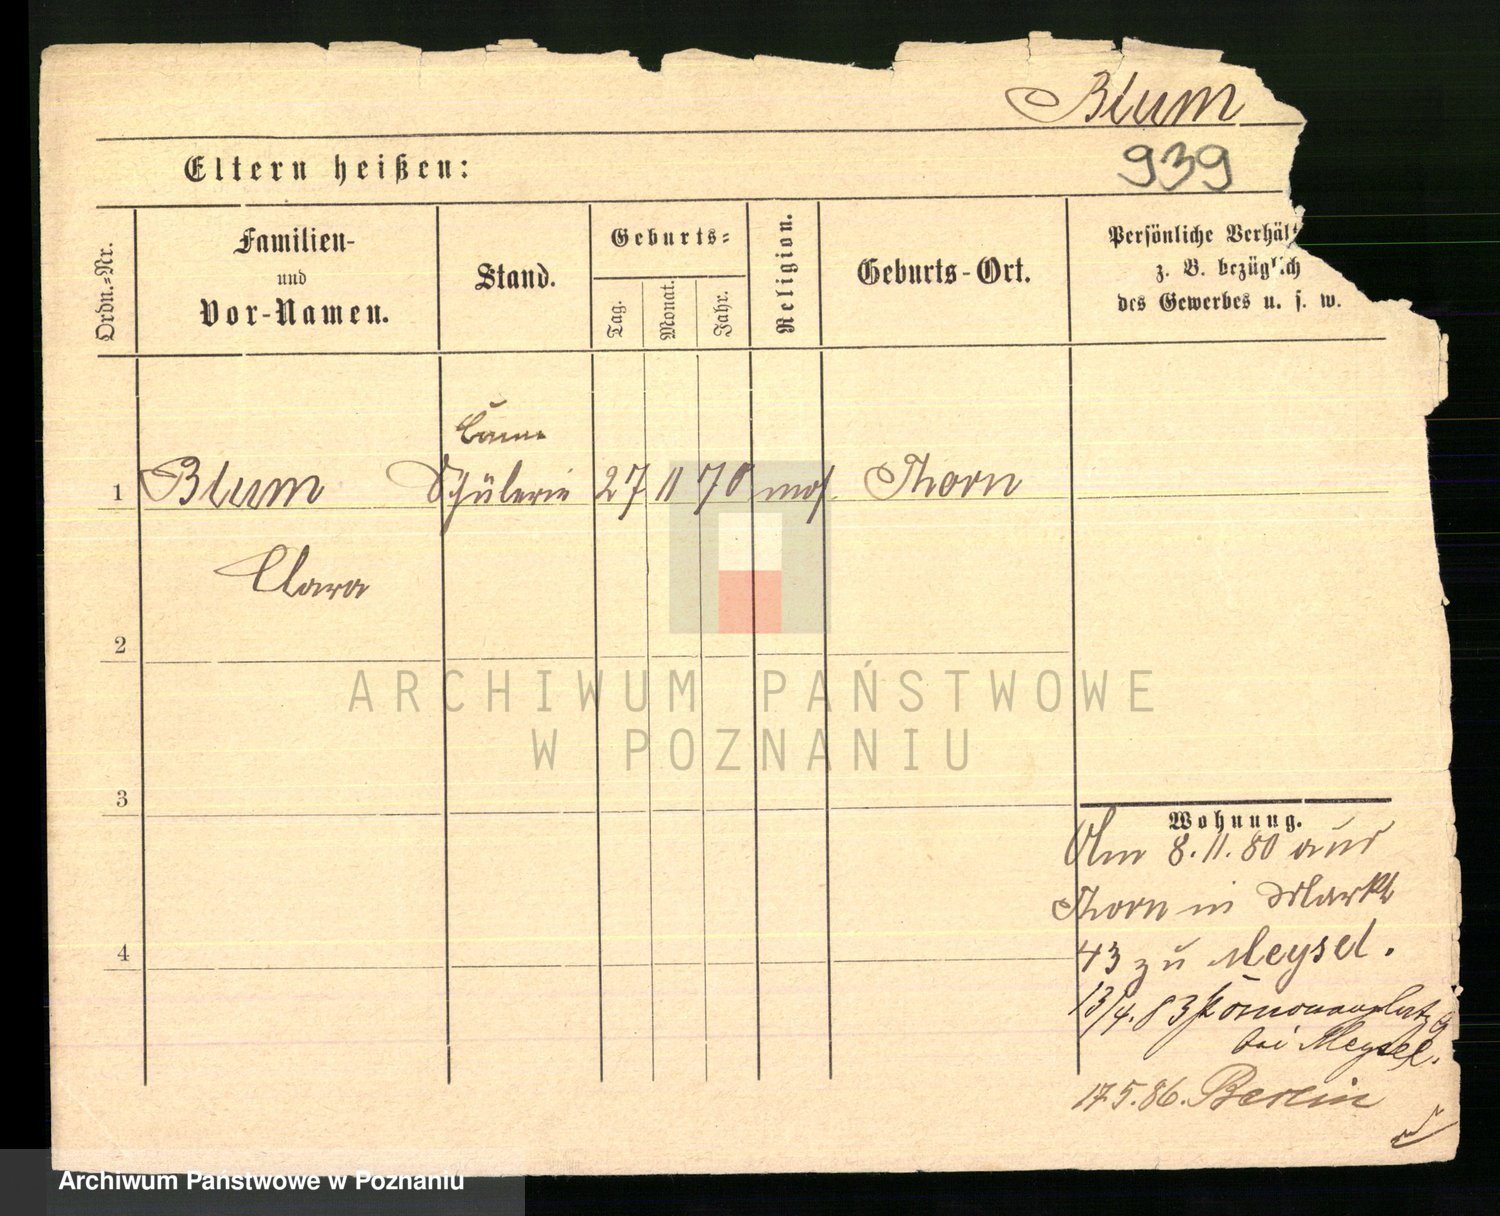 Blum
939
Eltern heißen:
Ordn.-Nr.
Familien-
und
Vor-Namen.
Stand.
Geburts-
Tag.
Monat.
Jahr.
Religion.
Geburts-Ort.
Persönliche Verhäl
z. B. bezüglich
des Gewerbes u. s. w.
1 Blum Schülerin 27 11 70 mos. Thorn
Clara
2
3
4
Wohnung.
Am 8.11.80 aus
Thorn in Markt
43 zu Meysel.
13/4.83
bei Meysel.
17.5.86. Berlin
ARCHIWUM PAŃSTWOWE
W POZNANIU
Archiwum Państwowe w Poznaniu